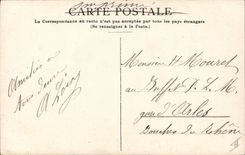 Imprimé
CARTE POSTALE
La Correspondance au recto n'est pas acceptée par tous les pays étrangers
(Se renseigner à la Poste.)
Monsieur H Mouret
au Buffet P. L. M.
gare d'Arles
Bouches du Rhône